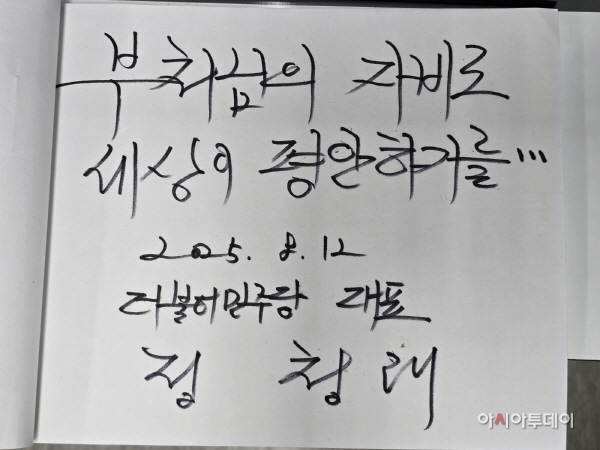 부처님의 자비로
세상이 평안하기를...
2025. 8. 12
더불어민주당 대표
정 청 래
아시아투데이